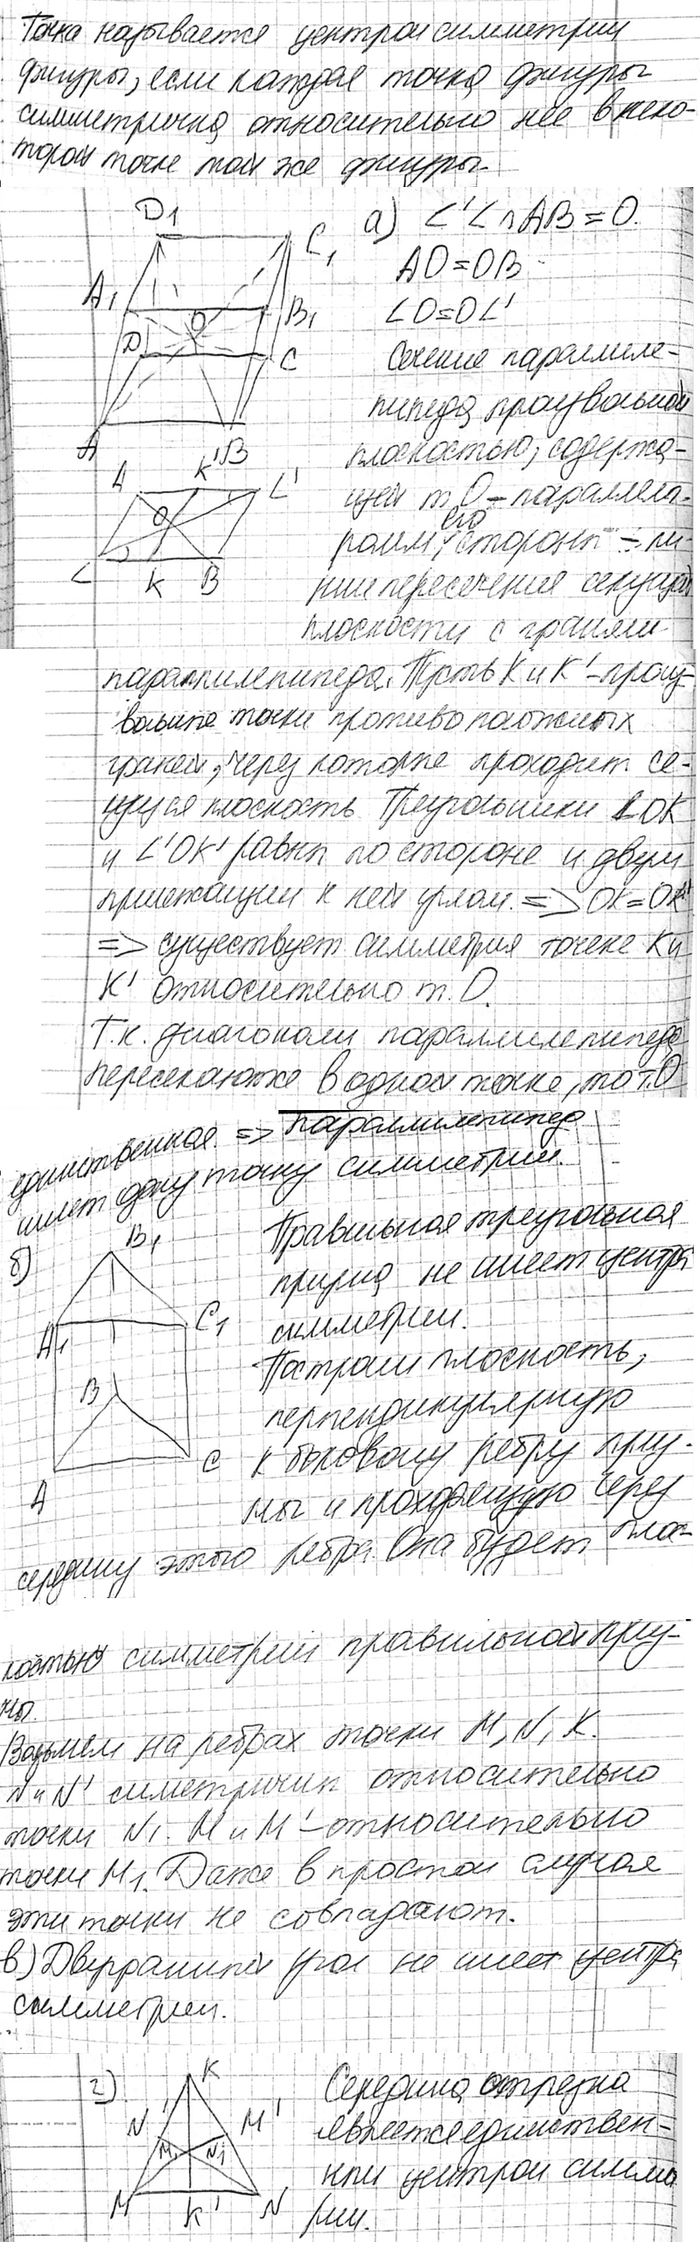 Точка называется центром симметрии
фигуры, если каждая точка фигуры
симметрична относительно неё неко-
торой точке той же фигуры.
D1
C1
A1
B1
O
D
C
A
B
а) L'L∩AB=O.
AO=OB
LO=OL'
Сечение параллеле-
пипеда произвольной
плоскостью, содержа-
щей т.O - параллело-
грамм, его стороны - ли-
нии пересечения секущей
плоскости с гранями
A
K'
L'
O
L
K
B
параллелепипеда. Пусть K и K' - произ-
вольные точки противоположных
граней, через которые проходит се-
кущая плоскость. Треугольники LOK
и L'OK' равны по стороне и двум
прилежащим к ней углам. => OK=OK'
=> существует симметрия точек K и
K' относительно т. O.
Т.к. диагонали параллелепипеда
пересекаются в одной точке, то т.O
единственная. => параллелепипед
имеет одну точку симметрии.
б)
B1
A1
C1
B
A
C
Правильная треугольная
призма не имеет центра
симметрии.
Построим плоскость,
перпендикулярную
к боковому ребру приз-
мы и проходящую через
середину этого ребра. Она будет плос-
костью симметрии правильной приз-
мы.
Возьмем на ребрах точки M, N, K.
N и N' симетричны относительно
точки N1. M и M' - относительно
точки M1. Даже в простом случае
эти точки не совпадают.
в) Двугранный угол не имеет центра
симметрии.
г)
K
N'
M'
M1
N1
M
K'
N
Середина отрезка
является единствен-
ным центром симме
рии.